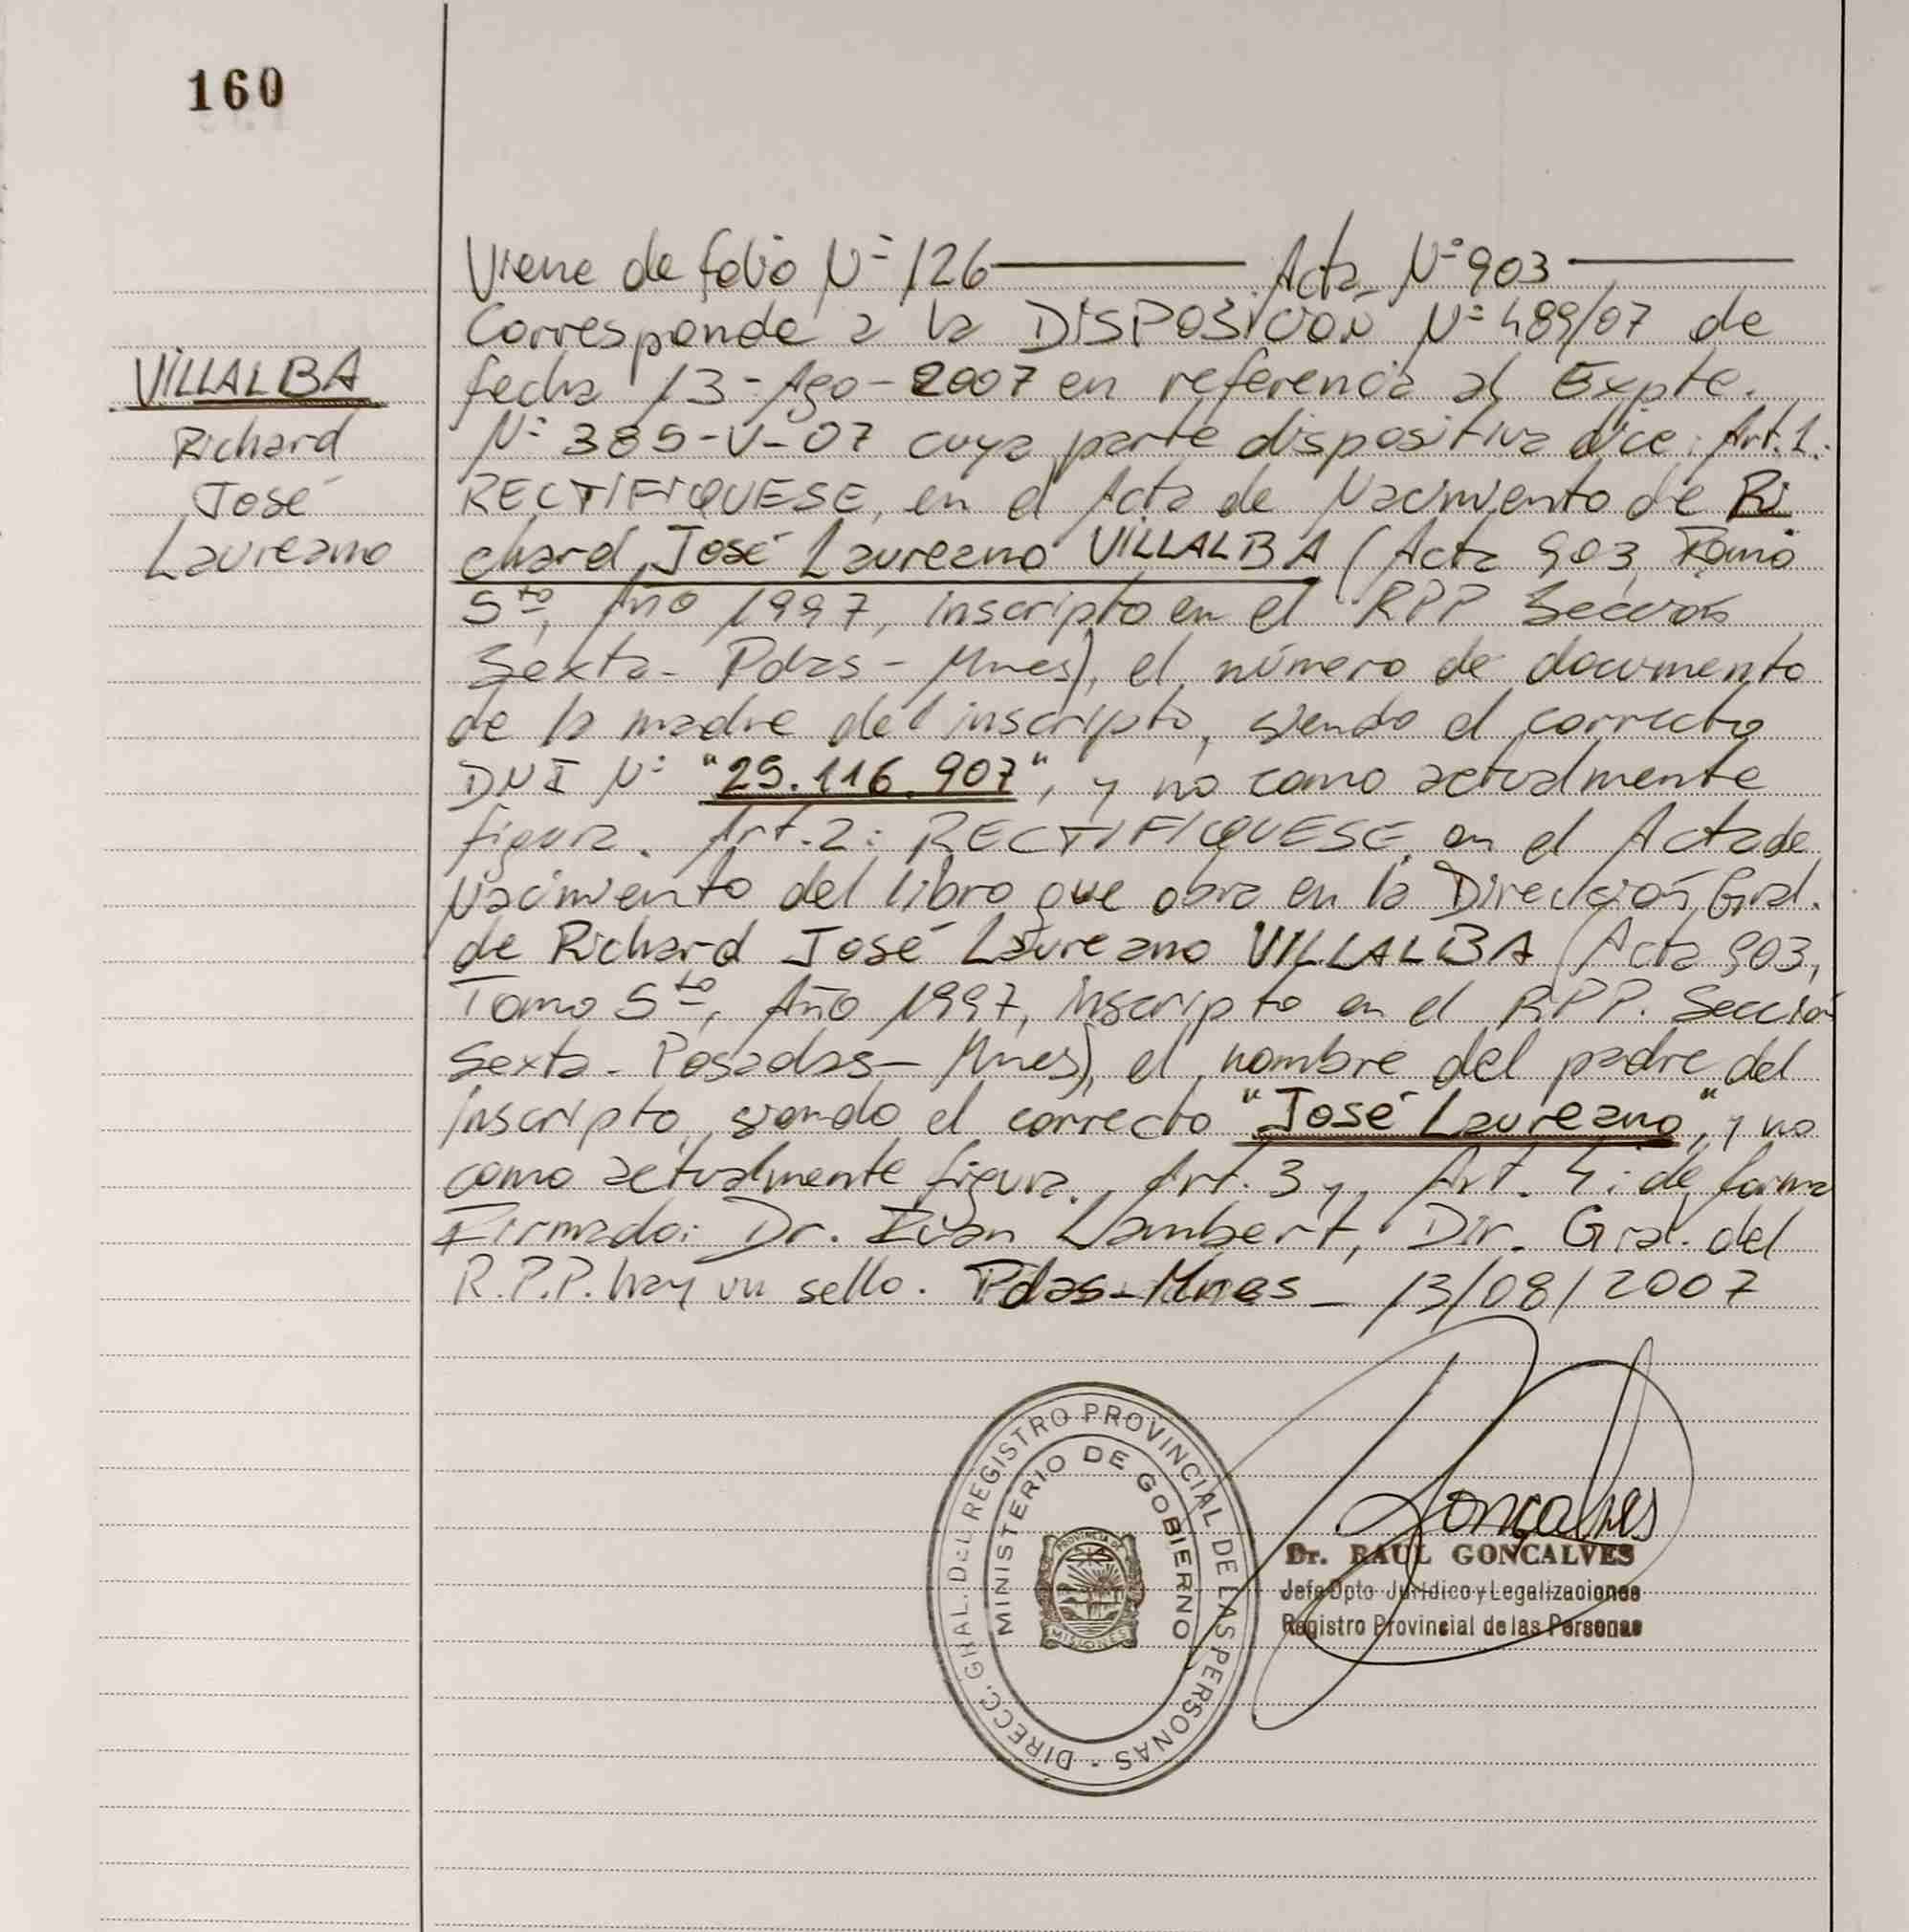 160
Viene de folio Nº 126 Acta Nº 903
Corresponde a la DISPOSICIÓN Nº 489/07 de
VILLALBA
fecha 13-Ago-2007 en referencia al Expte.
Richard
Nº 385-V-07 cuya parte dispositiva dice: Art. 1:
José
RECTIFIQUESE, en el Acta de Nacimiento de Ri
Laureano
chard José Laureano VILLALBA (Acta 903, Tomo
5to, Año 1997, inscripto en el RPP Sección
Sexta - Pdas - Mnes), el número de documento
de la madre del inscripto, siendo el correcto
DNI Nº "25.116.907", y no como actualmente
figura. Art. 2: RECTIFIQUESE en el Acta de
Nacimiento del libro que obra en la Dirección Gral.
de Richard José Laureano VILLALBA (Acta 903,
Tomo 5to, Año 1997, inscripto en el RPP. Sección
Sexta - Posadas - Mnes), el nombre del padre del
inscripto, siendo el correcto "José Laureano", y no
como actualmente figura. Art. 3 y Art. 4: de forma
Firmado: Dr. Iván Lambert, Dir. Gral. del
R.P.P. hay un sello. Pdas - Mnes - 13/08/2007
DIRECC. GRAL. DEL REGISTRO PROVINCIAL DE LAS PERSONAS -
MINISTERIO DE GOBIERNO
PROVINCIA DE
MISIONES
Gonçalves
Dr. RAUL GONCALVES
Jefe Dpto Jurídico y Legalizaciones
Registro Provincial de las Personas